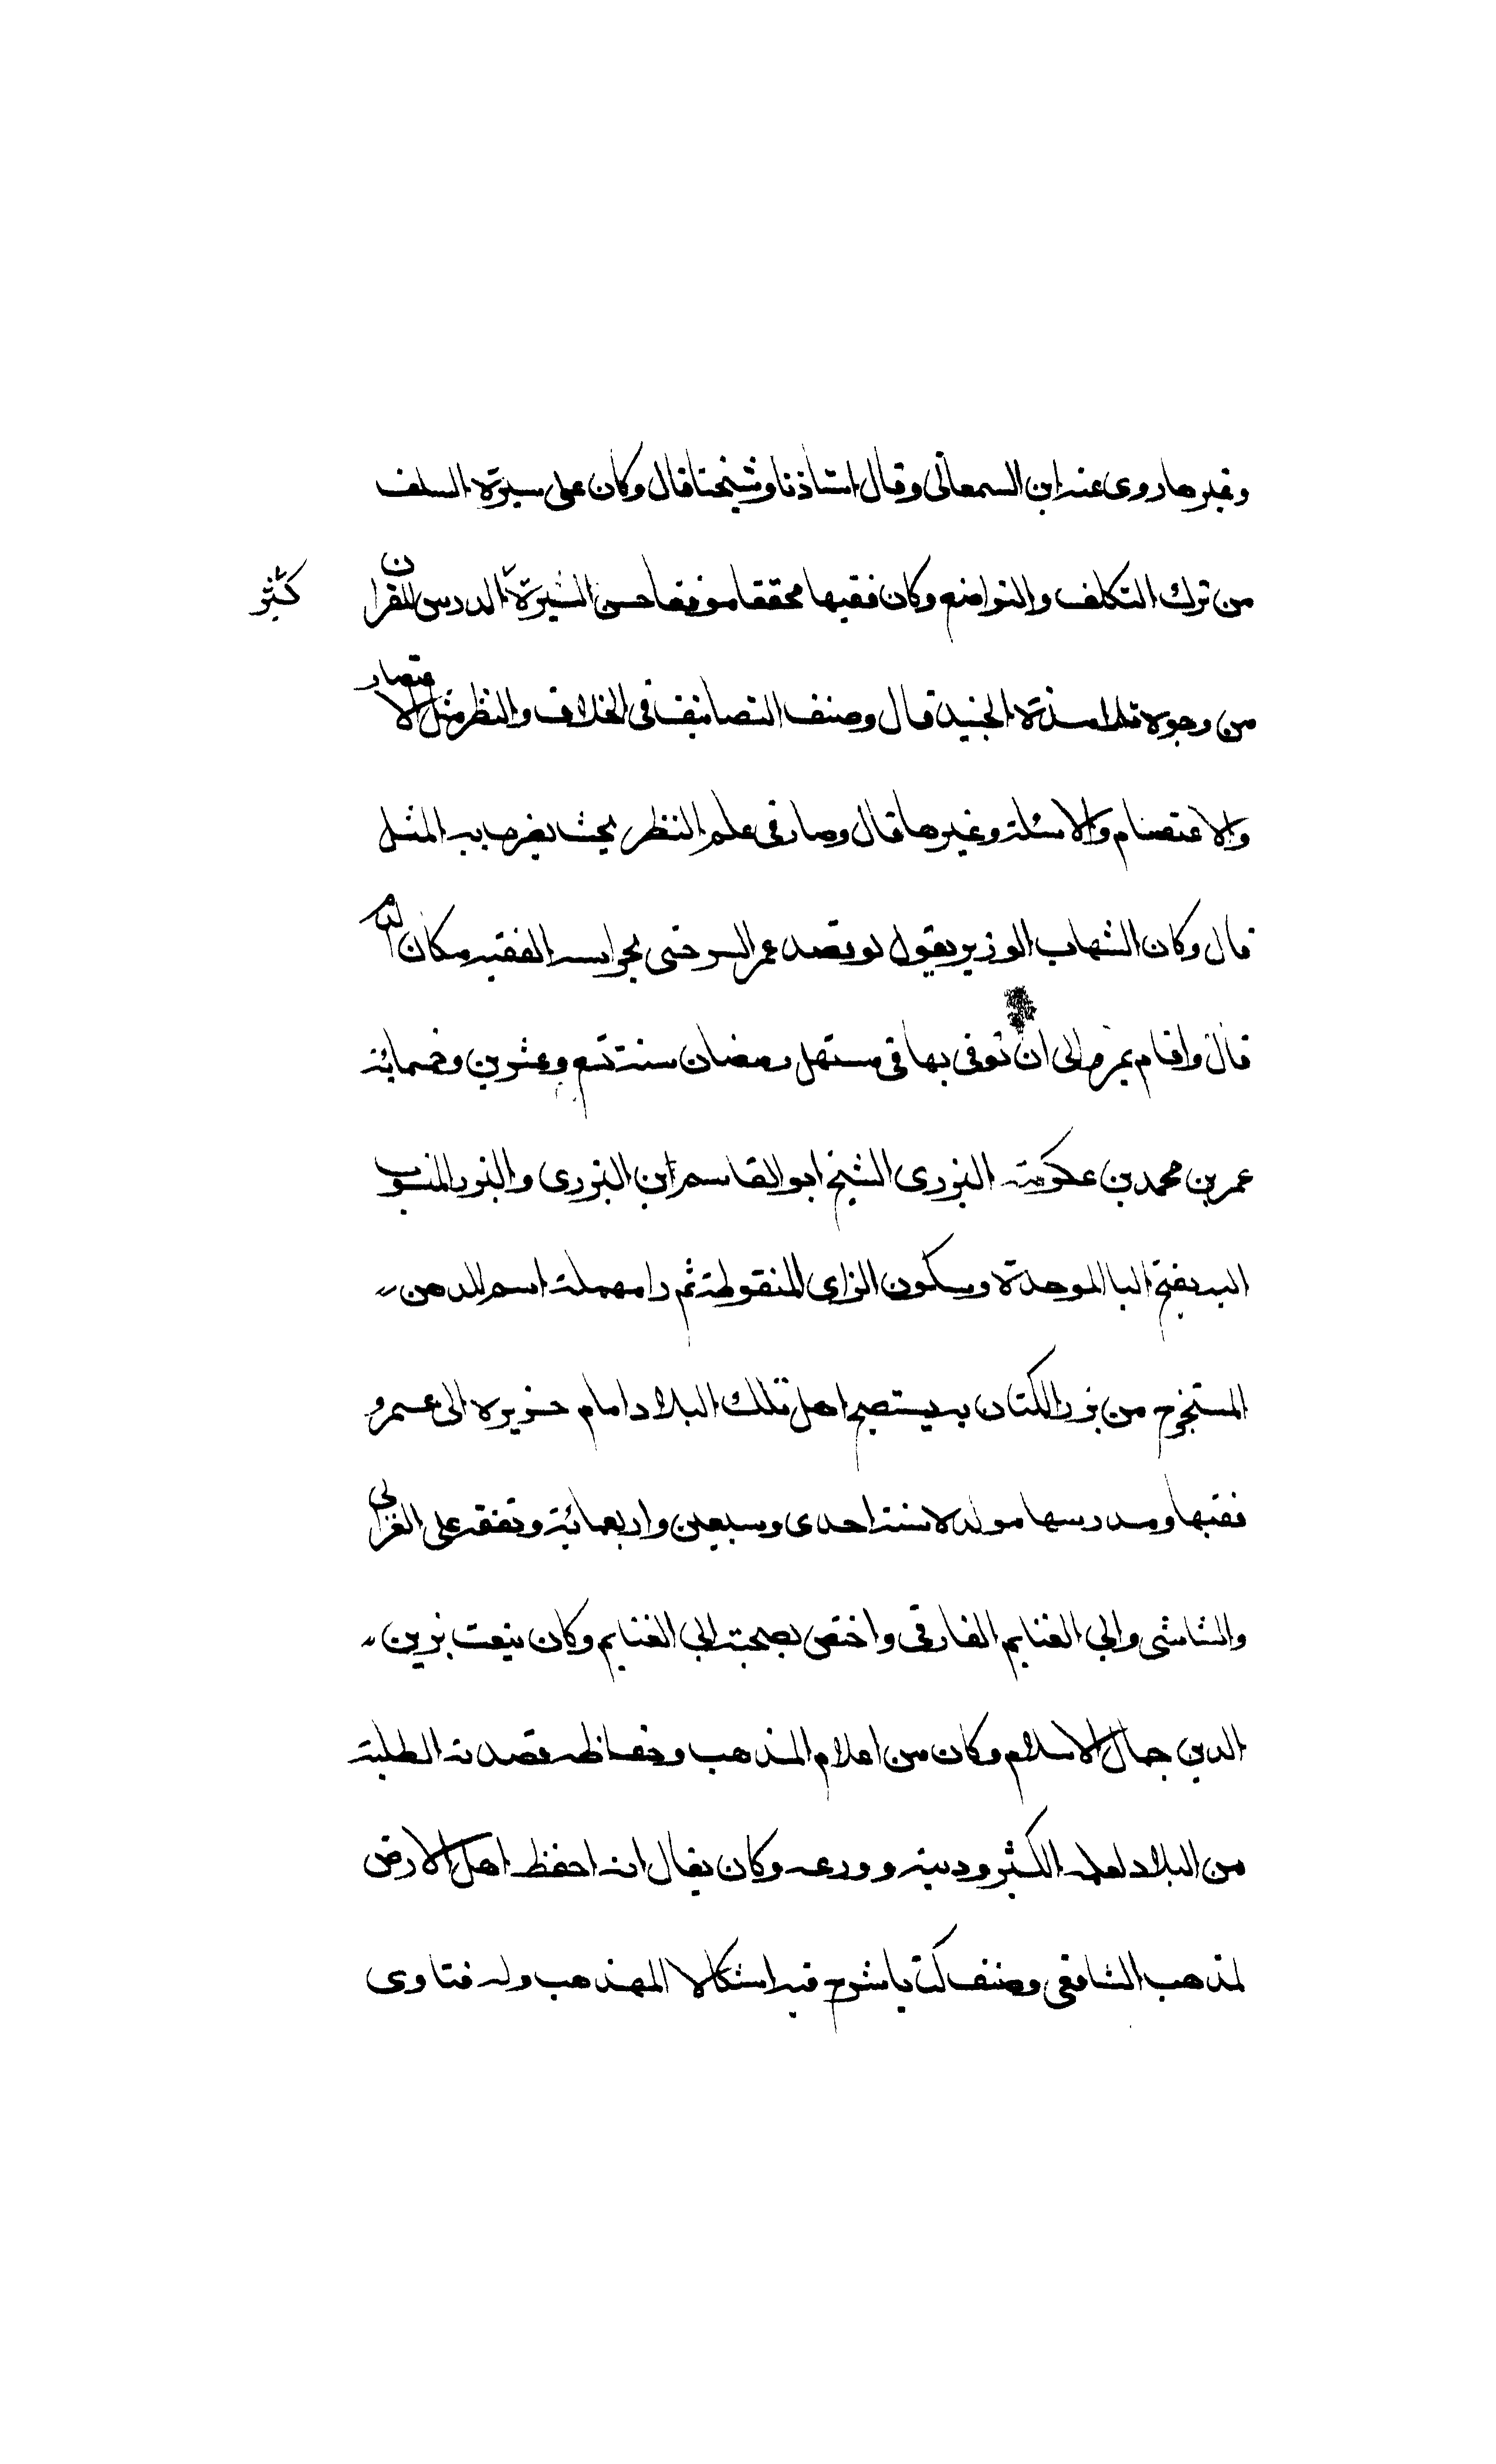 وغيرها روى عنه ابن السمعاني وقال استاذنا وشيخنا قال وكان على سيرة السلف
من ترك التكلف والتواضع وكان فقيها محققا موفقا حسن السيرة كثير الدرس للقران
من وجوه تلامذة الجنيد قال وصنف التصانيف في الخلاف والنظر مثل الاقتصار
والاعتصام والاسئلة وغيرها قال وصار في علم النظر بحيث يضرب به المثل
قال وكان الشهاب الوزير يقول لو فصد عمر السرخسي لجرا منه الفقه مكان الدم
قال واقام بمرو الى ان توفى بها في مستهل رمضان سنة تسع وعشرين وخمسمائة
عمر بن محمد بن عكرمة البزرى الشيخ ابو القاسم ابن البزرى والبزر المنسوب
اليه بفتح البا الموحدة وسكون الزاى المنقوطة ثم را مهملة اسم للدهن
المستخرج من بزر الكتان به يستصبح اهل تلك البلاد امام جزيره ابن عمرو
فقيها ومدرسها مولده سنة احدى وسبعين واربعمائة وتفقه على الغزالي
والشاشى وابي الغنايم الفارقى واختص بصحبة ابي الغنايم وكان ينعت بزين
الدين جمال الاسلام وكان من اعلام المذهب وحفاظه قصدته الطلبة
من البلاد لعلمه الكثير ودينه وورعه وكان يقال انه احفظ اهل الارض
لمذهب الشافعى وصنف كتابا شرح فيه اشكالا المهذب وله فتاوى